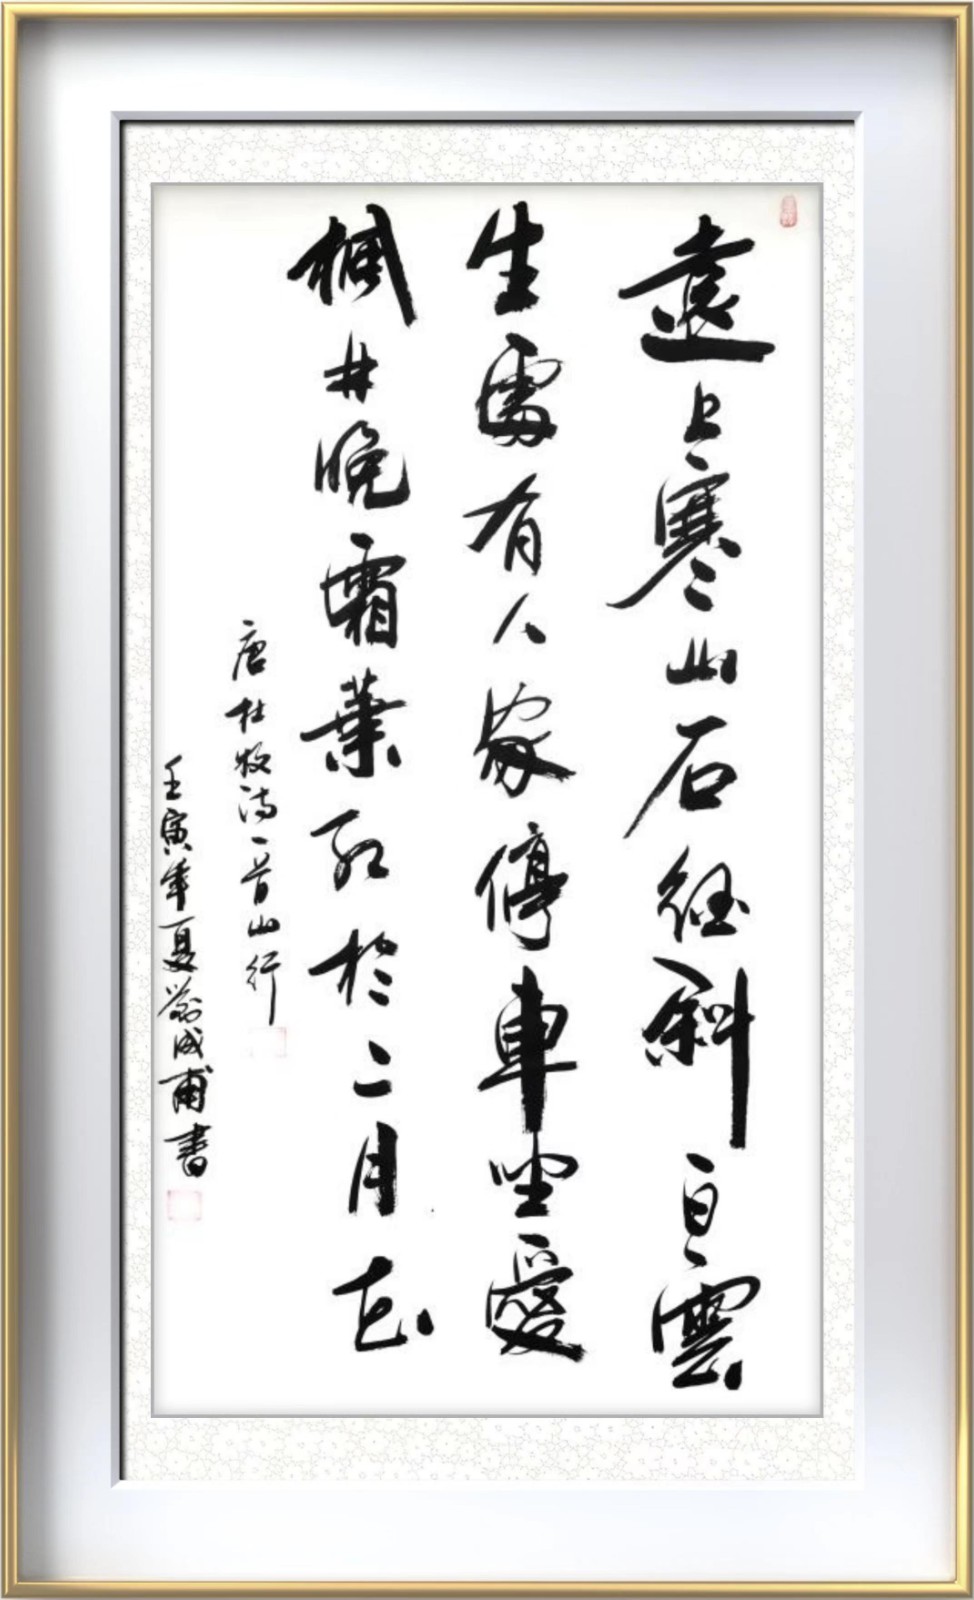 遠上寒山石徑斜白雲
生處有人家停車坐愛
楓林晚霜葉紅於二月花
唐杜牧詩一首山行
壬寅年夏成甫書